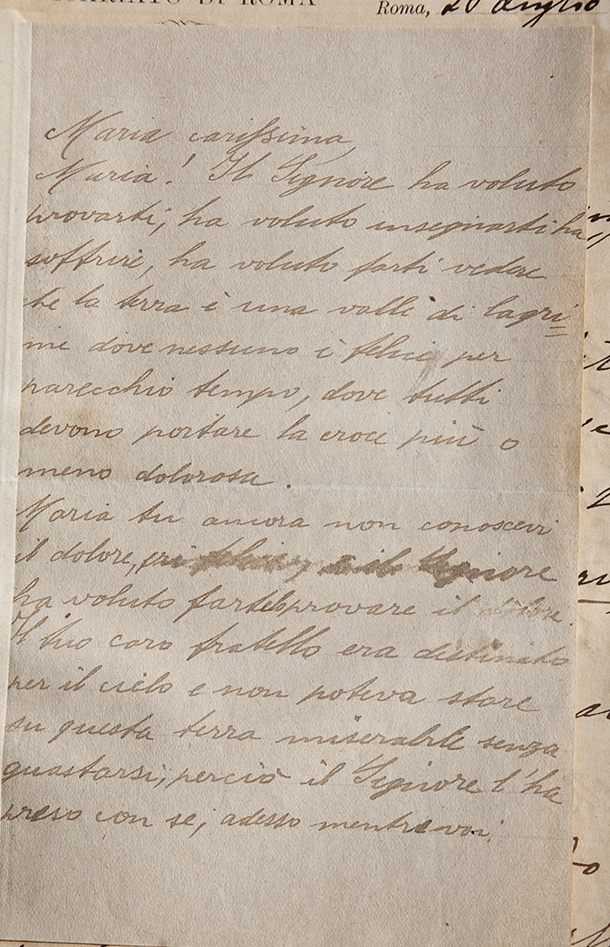 DI ROMA
Roma, 20
Maria carissima
Maria! Il Signore ha voluto
provarti, ha voluto insegnarti ha
soffrire, ha voluto farti vedere
che la terra è una valle di lagri=
me dove nessuno è felice per
parecchio tempo, dove tutti
devono portare la croce più o
meno dolorosa.
Maria tu ancora non conoscevi
il dolore, eri felice, e il Signore
ha voluto fartelo provare il dolore.
Il tuo caro fratello era destinato
per il cielo e non poteva stare
su questa terra miserabile senza
guastarsi, perciò il Signore l'ha
preso con se, adesso mentre voi